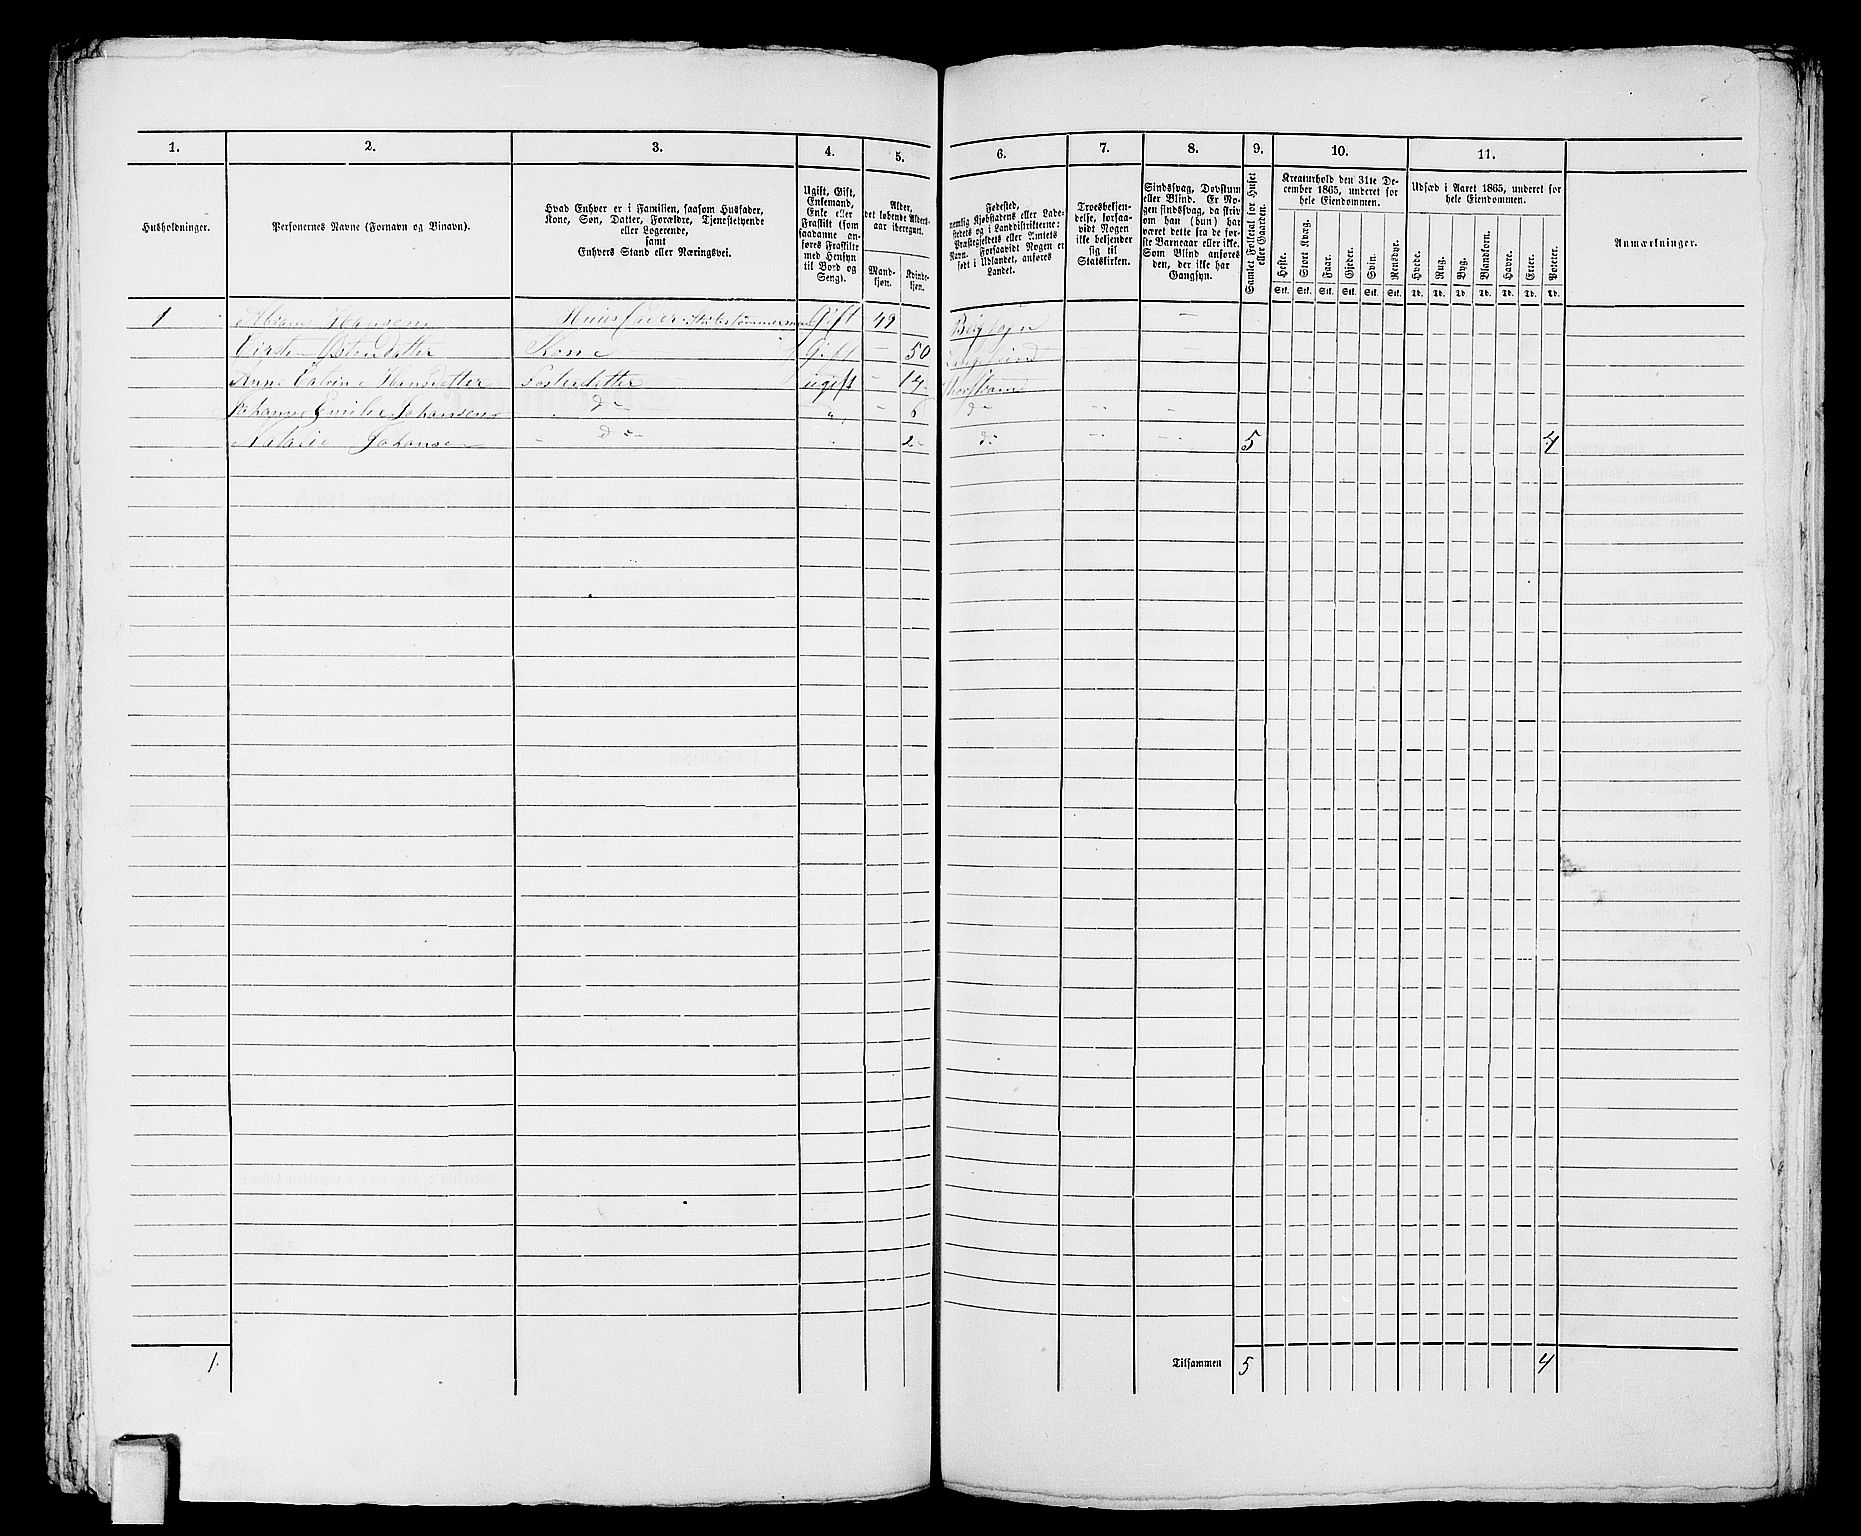 1. 2. 3. 4. 5. 6. 7. 8. 9. 10. 11.
Husholdninger.
Personernes Navne (Fornavn og Binavn).
Hvad Enhver er i Familien, saasom Husfader,
Kone, Søn, Datter, Forældre, Tjenestetyende
eller Logerende,
samt
Enhvers Stand eller Næringsvei.
Ugift, Gift,
Enkemand,
Enke eller
Fraskilt (som
saadanne an-
føres Fraskilte
med Hensyn
til Bord og
Seng).
Alder,
det løbende Alders-
aar iberegnet.
Mand-
kjøn.
Kvinde-
kjøn.
Fødested,
nemlig Kjøbstadens eller Lade-
stedets og i Landdistrikterne:
Præstegjeldets eller Amtets
Navn. Forsaavidt Nogen er
født i Udlandet, anføres
Landet.
Troesbekjen-
delse, forsaa-
vidt Nogen
ikke bekjender
sig til
Statskirken.
Sindssvag, Døvstum
eller Blind. Er No-
gen sindssvag, da skriv
om han (hun) har
været dette fra de før-
ste Barneaar eller ikke.
Som Blind anføres
den, der ikke har
Gangsyn.
Samlet Folketal for Huset
eller Gaarden.
Kreaturhold den 31te De-
cember 1865, underet for
hele Eiendommen.
Heste. Stort Kvæg. Faar. Gjeder. Svin. Rensdyr.
Stk. Stk. Stk. Stk. Stk. Stk.
Udsæd i Aaret 1865, underet for
hele Eiendommen.
Hvede. Rug. Byg. Blandkorn. Havre. Erter. Poteter.
Td. Td. Td. Td. Td. Td. Td.
Anmærkninger.
1 Abram Hansen Huusfader Gift 49
Kone Gift 50
Anne Hansdatter Fosterdatter ugift 14
Johanne Emilie Johansen do " 6 do
Johansen do " 2 do 5 4
1. Tilsammen 5 4